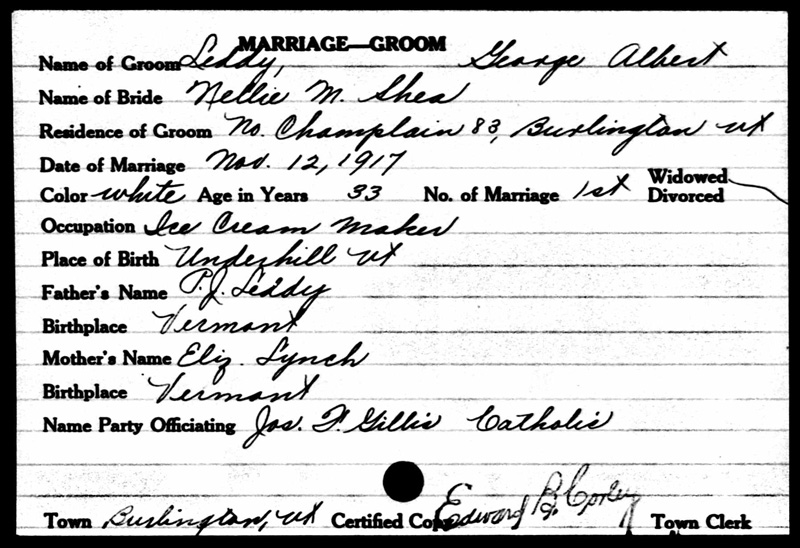 MARRIAGE—GROOM
Name of Groom Leddy, George Albert
Name of Bride Nellie M. Shea
Residence of Groom No. Champlain 83, Burlington Vt
Date of Marriage Nov. 12, 1917
Color white Age in Years 33 No. of Marriage 1st Widowed Divorced
Occupation Ice Cream Maker
Place of Birth Underhill Vt
Father's Name P.J. Leddy
Birthplace Vermont
Mother's Name Eliz. Lynch
Birthplace Vermont
Name Party Officiating Jos. F. Gillis Catholic
Town Burlington, Vt Certified Copy Edward B. Corley Town Clerk